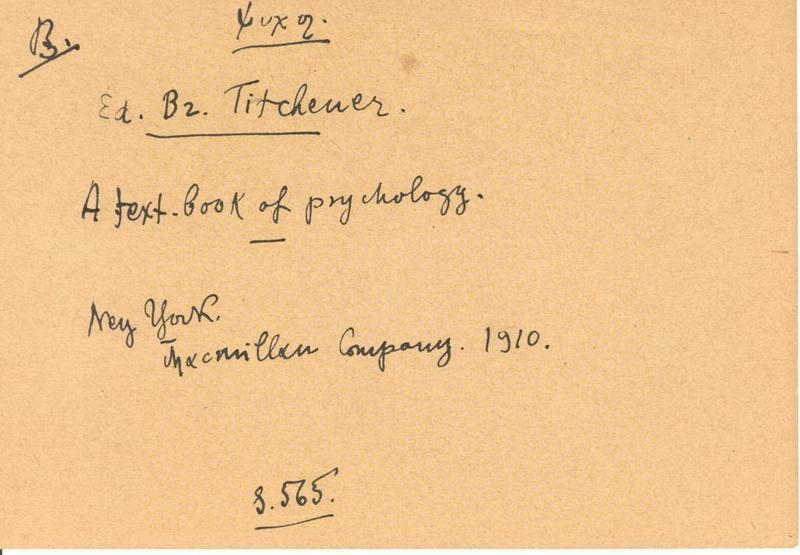 B.
Ψυχη.
Ed. Br. Titchener.
A text-book of psychology.
Ney York.
Macmillan Company. 1910.
S. 565.